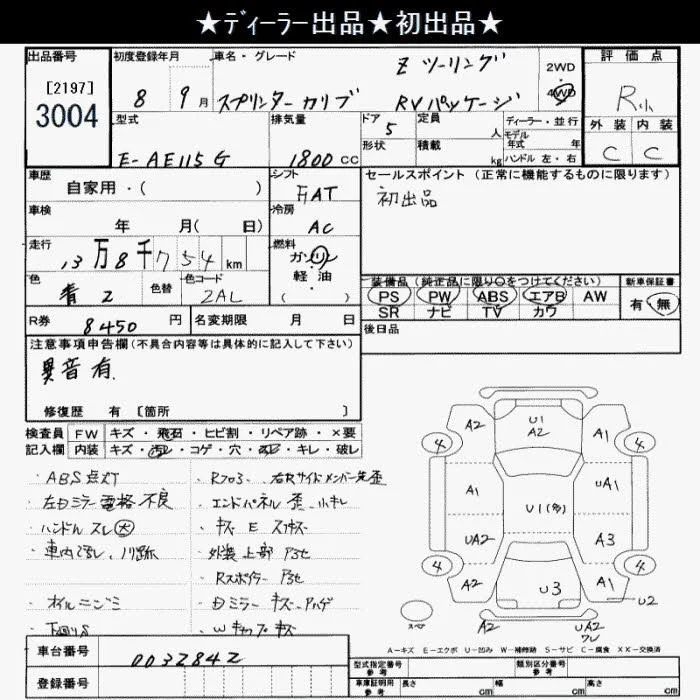 ★ディーラー出品★初出品★
出品番号
[2197]
3004
初度登録年月
8 9月
車名・グレード
Z ツーリング
スプリンター カリブ RVパッケージ
2WD
4WD
評価点
R小
外装 内装
C C
型式
E-AE115G
排気量
1800 CC
ドア
5
形状
定員
人
積載
kg
ディーラー・並行
モデル
年式 年
ハンドル 左・右
車歴
自家用・( )
シフト
FAT
セールスポイント(正常に機能するものに限ります)
初出品
車検
年 月(日)
冷房
AC
走行
13万8千754 km
燃料
ガソリン
軽油
( )
色
青2
色替
色コード
2AL
装備品(純正品に限り○をつけてください)
PS PW ABS エアB AW
SR ナビ TV カワ
新車保証書
有・無
R券
8450 円
名変期限 月 日
後日品
注意事項申告欄(不具合内容等は具体的に記入して下さい)
異音有.
修復歴 有 [箇所 ]
検査員 FW キズ・飛石・ヒビ割・リペア跡・×要
記入欄 内装 キズ・汚レ・コゲ・穴・・キレ・破レ
・ABS点灯
・左ドミラー電格不良
・ハンドルスレ大
・車内汚レ、
・オイルニジミ
・下回りS
・エンドパネル歪、小キレ
・キズ E
・外装上部
Rスポイラー
・ドミラー キズ ハゲ
・W キズ
A2
U1
A2
A1
4
4
A1
UA1
U1(多)
UA2
A3
4
4
A2
U3
A1
U2
スペア
A2
UA2
ワレ
A-キズ E-エクボ U-凹み W-補修跡 S-サビ C-腐食 XX-交換済
車台番号
0032842
登録番号
型式指定番号
参考
類別区分番号
参考
車庫証明用
参考
長さ cm
幅 cm
高さ cm